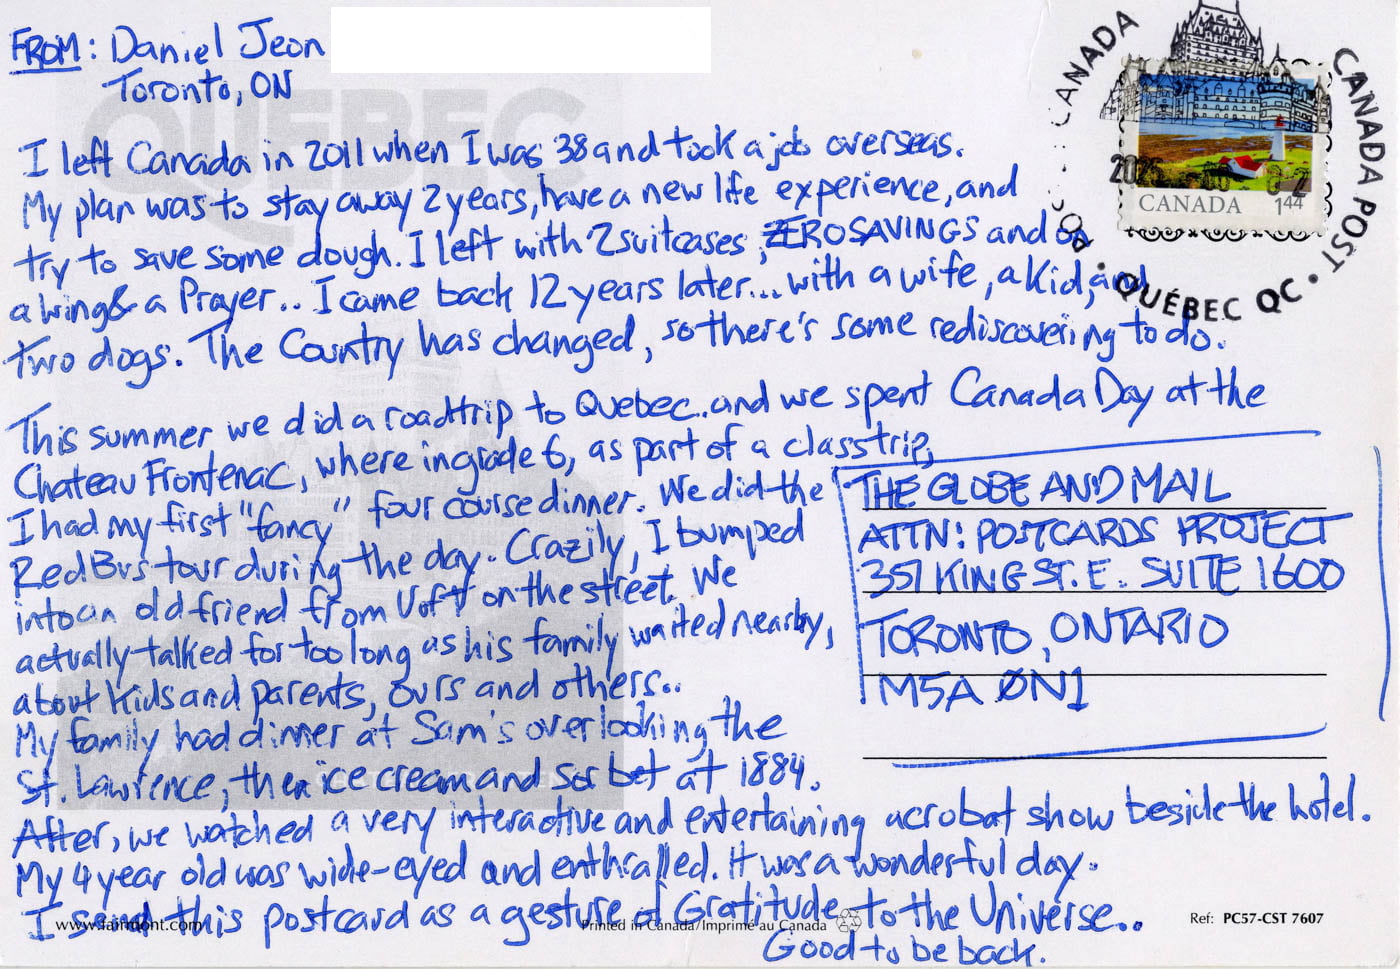 FROM: Daniel Jeon
Toronto, ON
QUEBEC
CANADA
CANADA POST • POS
• QUÉBEC QC •
CANADA 1⁴⁴
I left Canada in 2011 when I was 38 and took a job overseas.
My plan was to stay away 2 years, have a new life experience, and
try to save some dough. I left with 2 suitcases, ZERO SAVINGS and on
a wing & a Prayer.. I came back 12 years later... with a wife, a kid, and
two dogs. The Country has changed, so there's some rediscovering to do.
This summer we did a roadtrip to Quebec.. and we spent Canada Day at the
Chateau Frontenac, where in grade 6, as part of a class trip,
I had my first "fancy" four course dinner. We did the
Red Bus tour during the day. Crazily, I bumped
into an old friend from UofT on the street. We
actually talked for too long as his family waited nearby,
about kids and parents, ours and others..
My family had dinner at Sam's overlooking the
St. Lawrence, then ice cream and sorbet at 1884.
After, we watched a very interactive and entertaining acrobat show beside the hotel.
My 4 year old was wide-eyed and enthralled. It was a wonderful day.
I send this postcard as a gesture of Gratitude to the Universe..
Good to be back.
THE GLOBE AND MAIL
ATTN: POSTCARDS PROJECT
351 KING ST. E. SUITE 1600
TORONTO, ONTARIO
M5A 0N1
www.fairmont.com
Printed in Canada/Imprimé au Canada
Ref: PC57-CST 7607